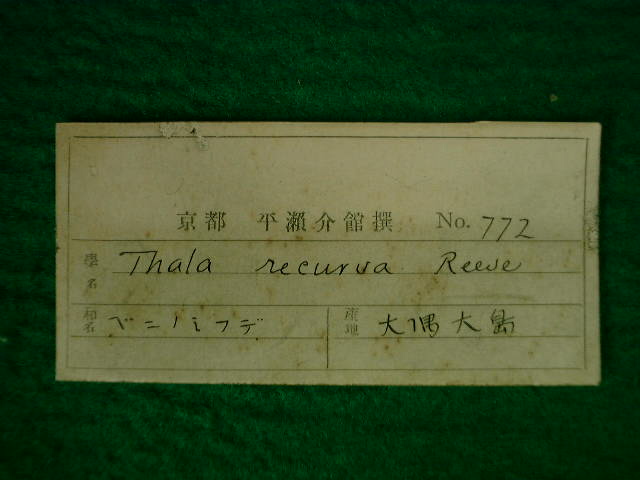 京都 平瀨介館撰 No. 772
學名 Thala recurva Reeve
和名 ベニノミフデ 産地 大隅大島